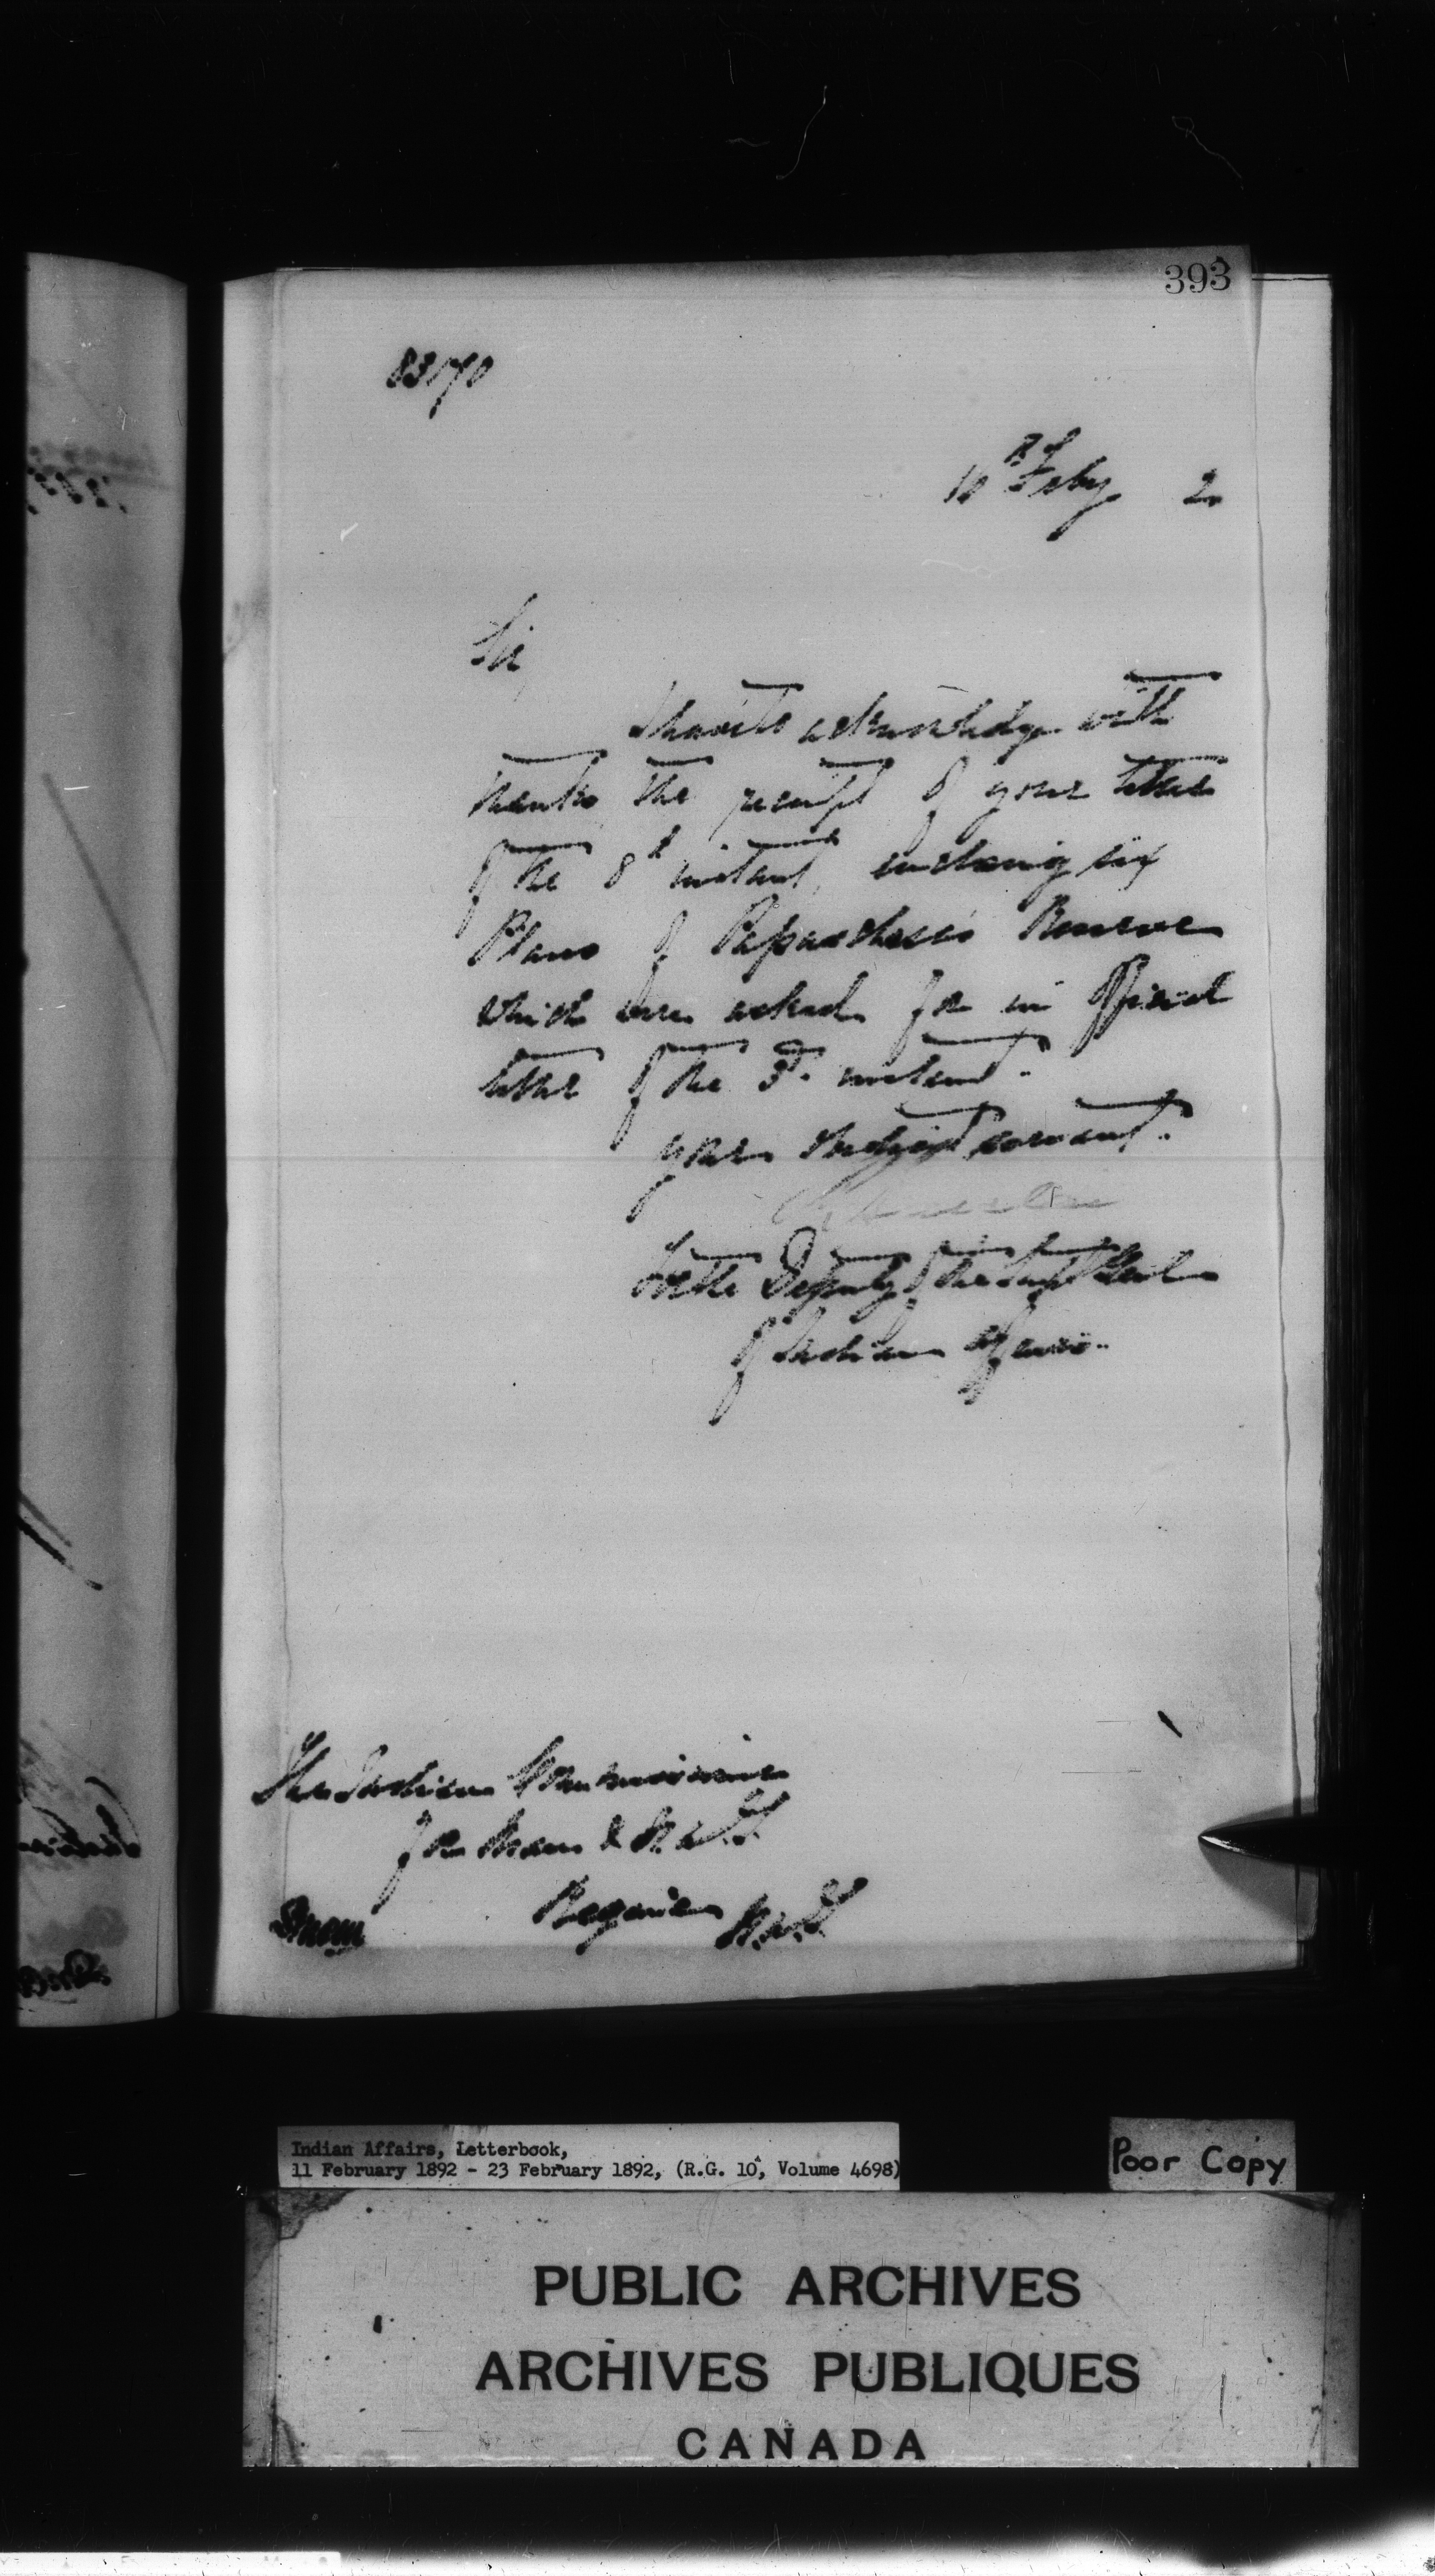 393
83170
16th Feby 2
Sir
I have to acknowledge with
thanks the receipt of your letter
of the 8th instant, enclosing six
Plans of Reserve
which were asked for in official
letter of the 3d. instant.
your obedient servant.
for the Deputy of the Supt Genl
of Indian Affairs.
The Indian Commissioner
for Man & N.W.T.
Regina N.W.T.
Indian Affairs, Letterbook,
11 February 1892 - 23 February 1892, (R.G. 10, Volume 4698)
Poor Copy
PUBLIC ARCHIVES
ARCHIVES PUBLIQUES
CANADA